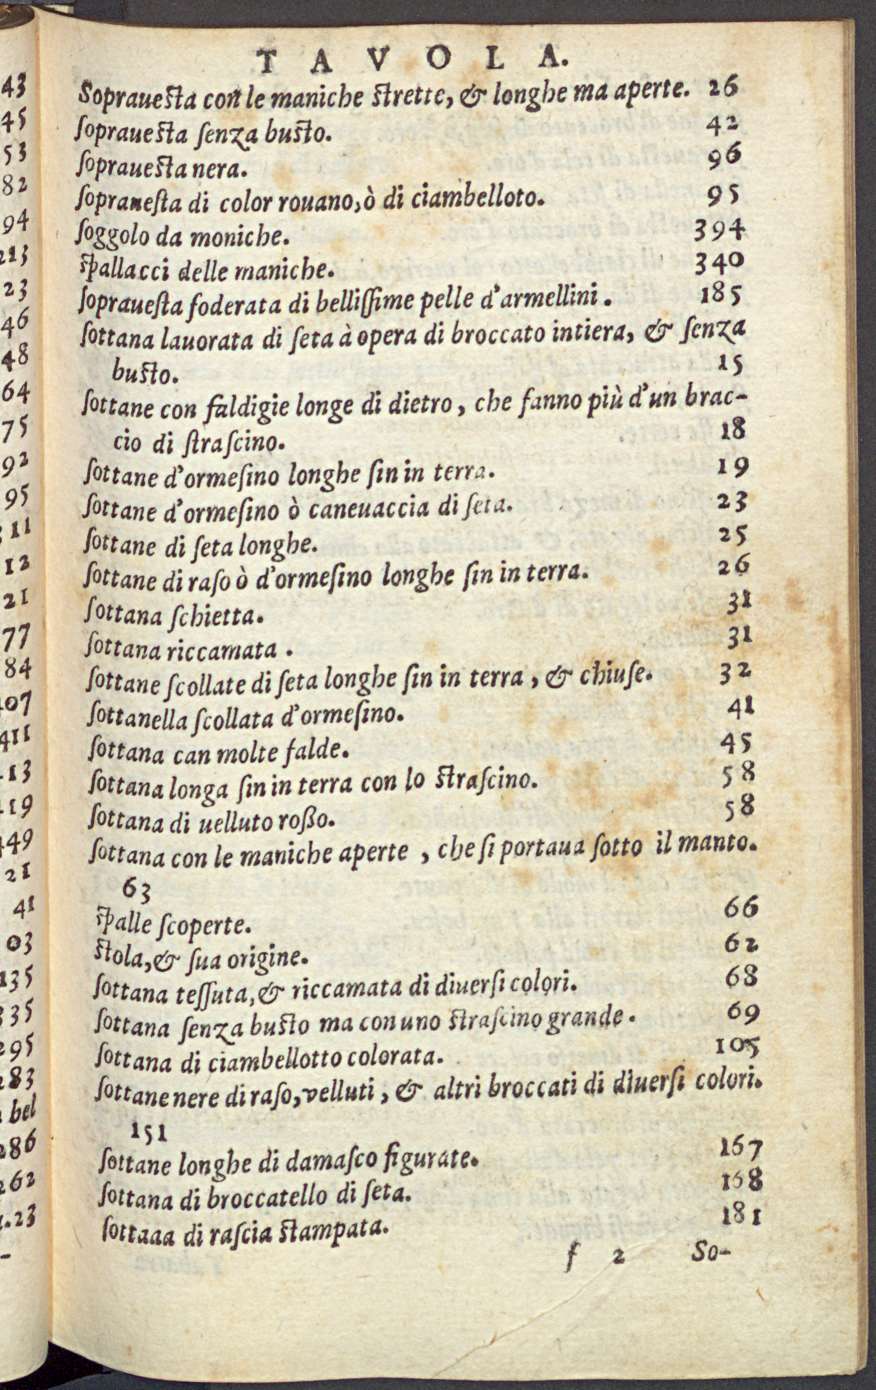 43
45
53
82
94
213
23
46
48
64
75
92
95
311
12
21
77
84
407
411
413
119
449
21
41
03
135
335
295
283
bel
286
262
23
TAVOLA.
Sopraueſta con le maniche ſtrette, & longhe ma aperte. 26
ſopraueſta ſenza buſto. 42
ſopraueſta nera. 96
ſopraueſta di color rouano, ò di ciambelloto. 95
ſoggolo da moniche. 394
ſpallacci delle maniche. 340
ſopraueſta foderata di belliſſime pelle d'armellini. 185
ſottana lauorata di ſeta à opera di broccato intiera, & ſenza
buſto. 15
ſottane con faldigie longe di dietro, che fanno più d'un brac-
cio di ſtraſcino. 18
ſottane d'ormeſino longhe ſin in terra. 19
ſottane d'ormeſino ò caneuaccia di ſeta. 23
ſottane di ſeta longhe. 25
ſottane di raſo ò d'ormeſino longhe ſin in terra. 26
ſottana ſchietta. 31
ſottana riccamata. 31
ſottane ſcollate di ſeta longhe ſin in terra, & chiuſe. 32
ſottanella ſcollata d'ormeſino. 41
ſottana can molte falde. 45
ſottana longa ſin in terra con lo ſtraſcino. 58
ſottana di uelluto roßo. 58
ſottana con le maniche aperte, che ſi portaua ſotto il manto.
63
ſpalle ſcoperte. 66
ſtola, & ſua origine. 62
ſottana teſſuta, & riccamata di diuerſi colori. 68
ſottana ſenza buſto ma con uno ſtraſcino grande. 69
ſottana di ciambellotto colorata. 105
ſottane nere di raſo, velluti, & altri broccati di diuerſi colori.
151
ſottane longhe di damaſco figurate. 167
ſottana di broccatello di ſeta. 168
ſottaaa di raſcia ſtampata. 181
f 2 So-